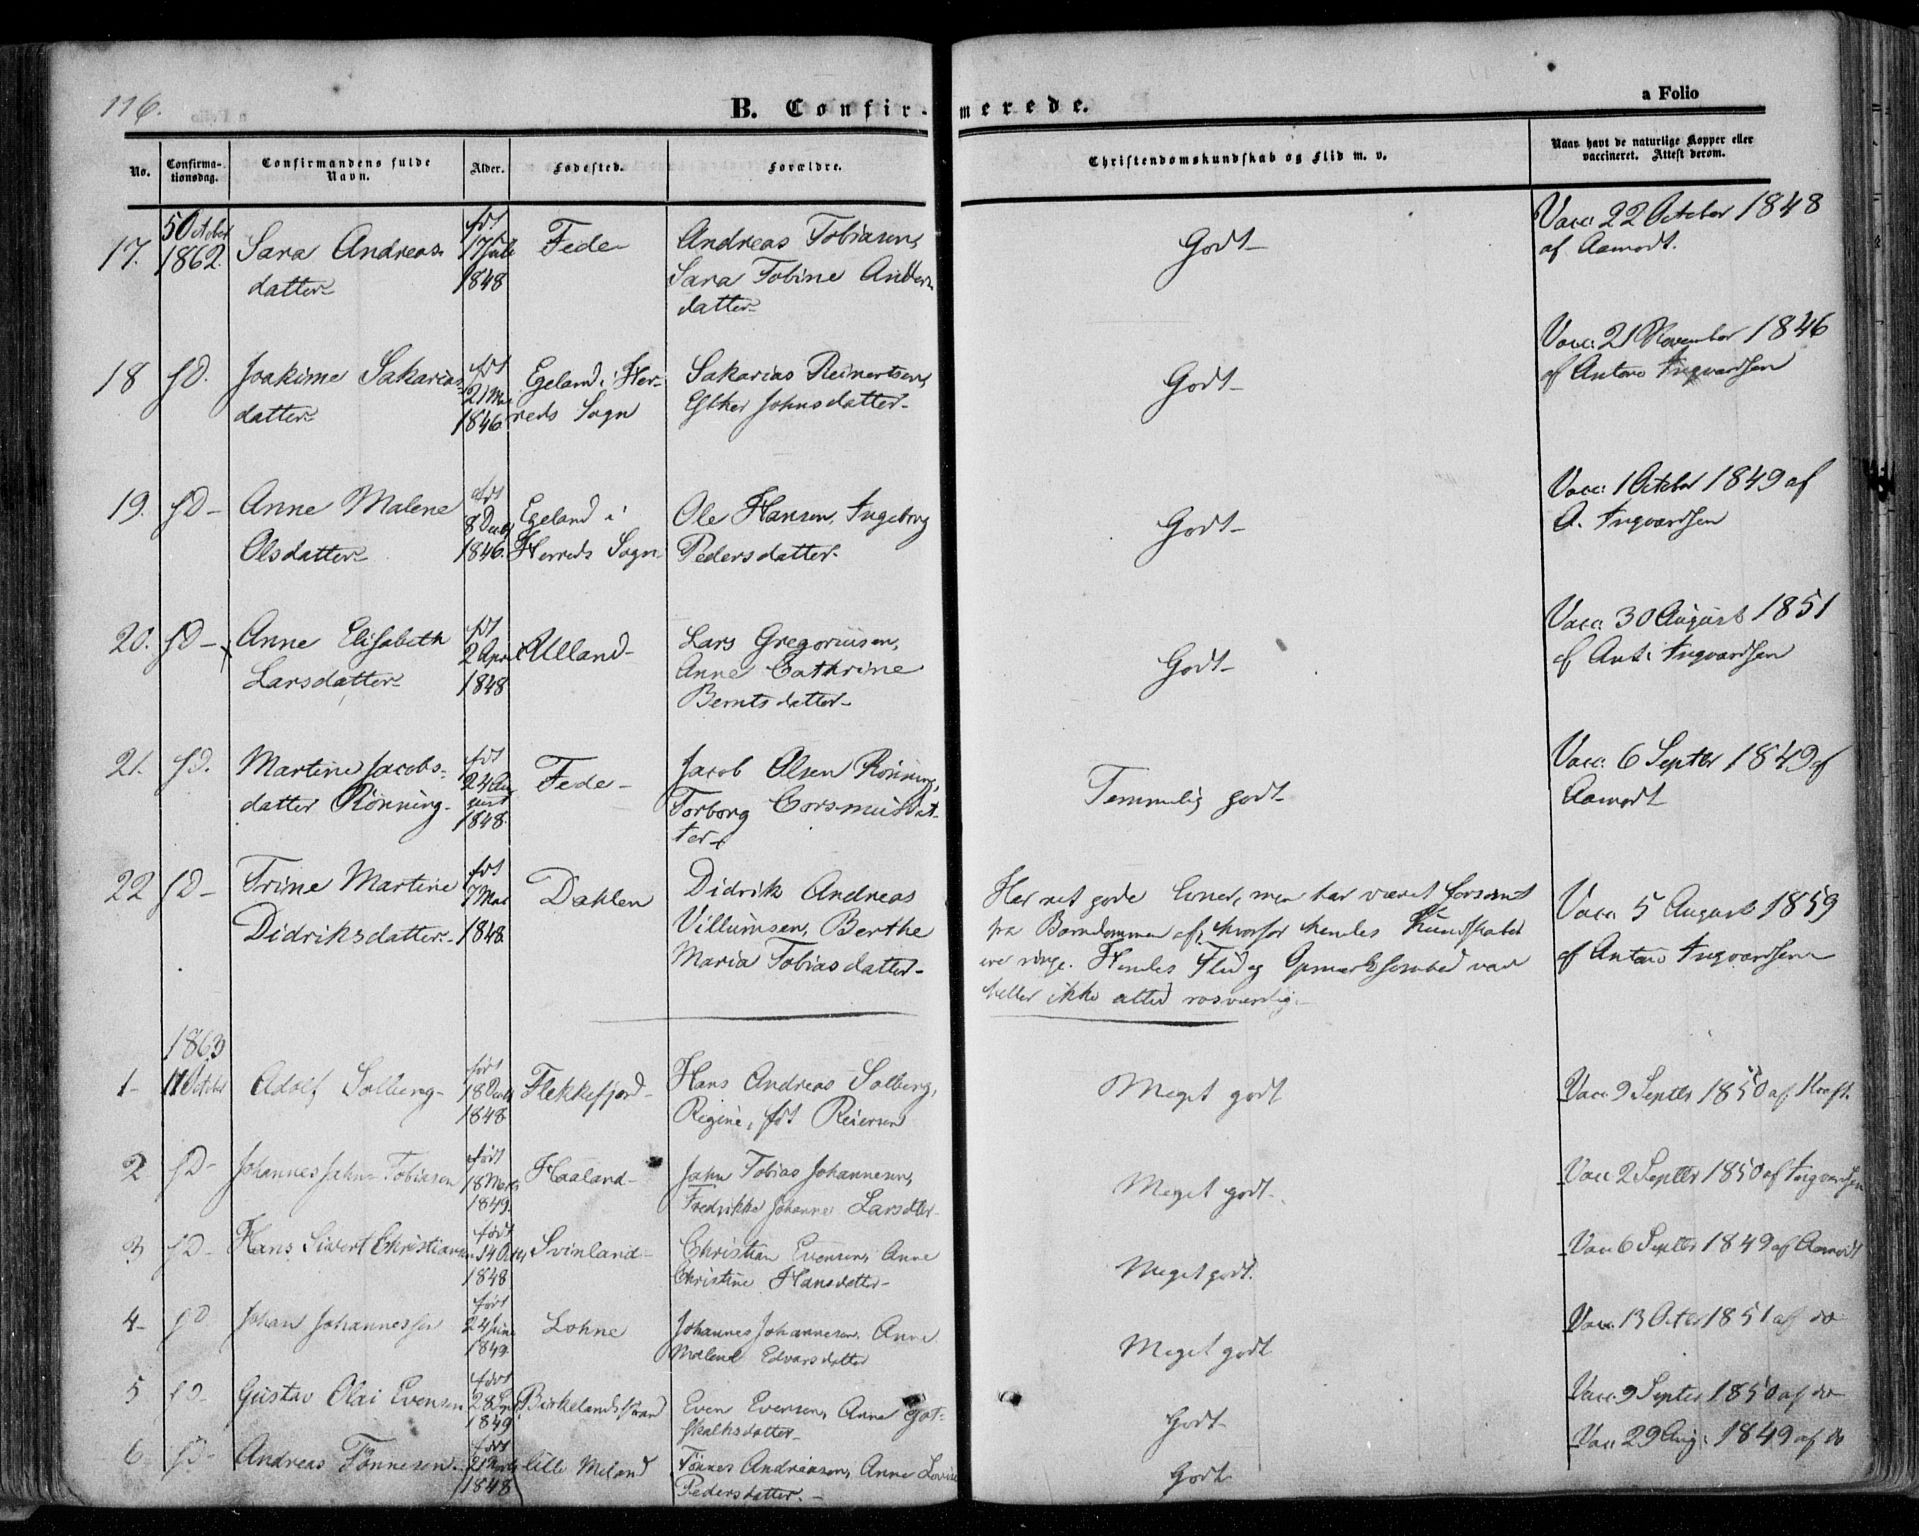 116.
B. Confirmerede.
a Folio
No.
Confirmationsdag.
Confirmandens fulde Navn.
Alder.
Fødested.
Forældre.
Christendomskundskab og Flid m. v.
Naar havt de naturlige Kopper eller vaccineret. Attest derom.
17. 5 October 1862. Sara Andreas-
datter- født 17 Juli 1848 Fede- Andreas Tobiasen,
Sara Tobine Anders-
datter- Godt- Vacc. 22 October 1848
af Aamodt.
18 sd. Joakime Sakarias-
datter- født 21 Mai 1846 Egeland i Her-
reds Sogn Sakarias Reinertsen,
Esther Johnsdatter- Godt- Vacc. 21 November 1846
af Anton Ingvardsen
19. sd- Anne Malene
Olsdatter- født 8 Decbr 1846. Egeland i
Herreds Sogn- Ole Hansen, Ingeborg
Pedersdatter- Godt- Vacc. 1 October 1849 af
A. Ingvardsen
20. sd- Anne Elisabeth
Larsdatter- født 2 April 1848 Ulland- Lars Gregoriusen,
Anne Cathrine
Berntsdatter- Godt- Vacc. 30 August 1851
af Ant: Ingvardsen
21. sd. Martine Jacobs-
datter Rönning- født 24 August 1848. Fede- Jacob Olsen Rönning,
Torborg Corsmusdat-
ter- Temmelig godt- Vacc. 6 Septbr 1849 af
Aamodt
22 sd- Trine Martine
Didriksdatter- født 7 Mai 1848. Dahlen Didrik Andreas
Villumsen, Berthe
Maria Tobiasdatter- Har ret gode Evner, men har været forsømt
fra Barndommen af, hvorfor hendes Kundskaber
ere ringe. Hendes Flid og Opmærksomhed var
heller ikke altid rosværdig.- Vacc. 5 August 1859
af Anton Ingvardsen
1863
1- 11 October Adolf Solberg- født 18 Decbr 1848 Flekkefjord- Hans Andreas Solberg,
Regine, født Reiersen Meget godt Vacc. 9 Septbr 1850 af Kraft.
2 sd- Johannes Jahn Tobiasen født 18 Marts 1849. Haaland- Jahn Tobias Johannesen,
Fredrikke Johanne Larsdtter- Meget godt- Vacc. 2 Septbr 1850 af Ingvardsen
3 sd- Hans Sivert Christiansen født 14 Octbr 1848 Svinland- Christian Evensen, Anne
Christine Hansdatter- Meget godt. Vacc. 6 Septbr 1849 af Aamodt
4- sd. Johan Johannessen født 24 Juni 1849 Lohne Johannes Johannesen, Anne
Malene Edvarsdatter Meget godt Vacc. 13 Octbr 1851 af do
5 sd- Gustav Olai Evensen født 28 1849 Birkelandsstrand Even Evensen, Anne Got-
skalksdatter- Godt- Vacc. 9 Septbr 1850 af do
6 sd- Andreas Tønnesen- født 21 1848 Lille Meland Tönnes Andreasen, Anne Lovise
Pedersdatter.- Godt Vacc. 29 Aug. 1849 af do